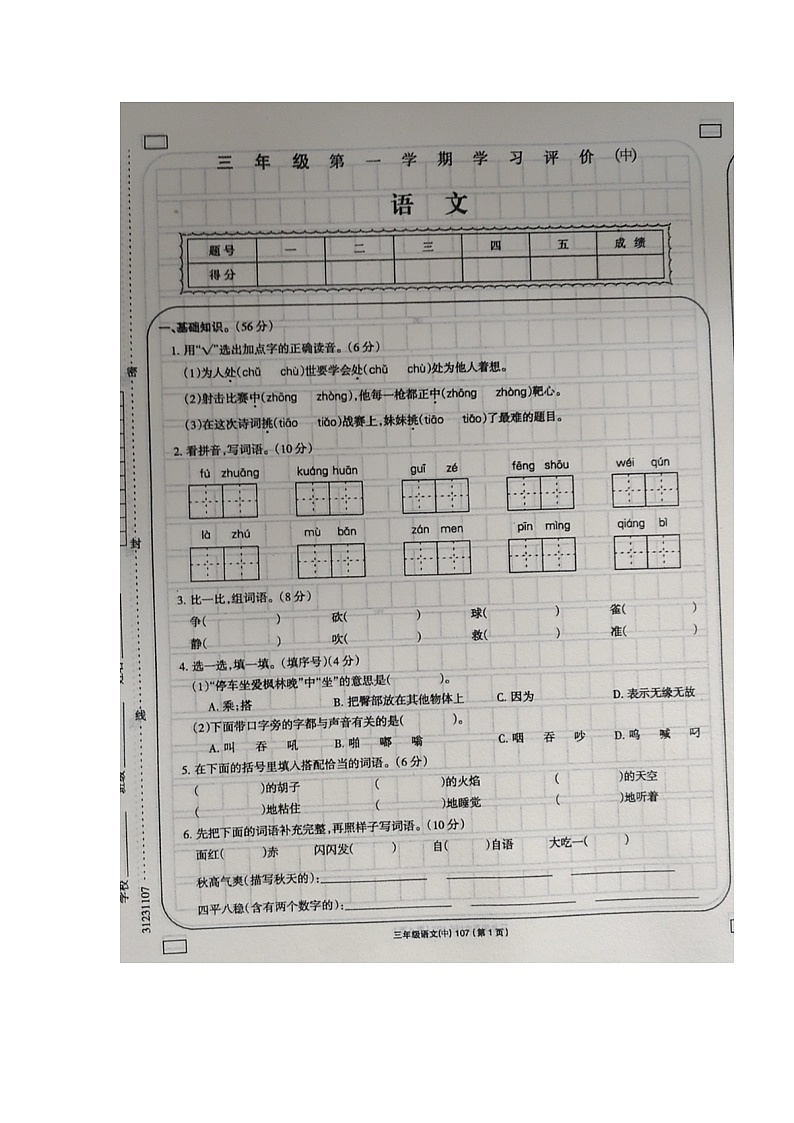 三年级第一学期学习评价(中)
语 文
题号 一 二 三 四 五 成绩
得分
一、基础知识。(56分)
1. 用“√”选出加点字的正确读音。(6分)
(1)为人处(chǔ chù)世要学会处(chǔ chù)处为他人着想。
(2)射击比赛中(zhōng zhòng),他每一枪都正中(zhōng zhòng)靶心。
(3)在这次诗词挑(tiāo tiǎo)战赛上,妹妹挑(tiāo tiǎo)了最难的题目。
2. 看拼音,写词语。(10分)
fú zhuāng kuáng huān guī zé fēng shōu wéi qún
là zhú mù bān zán men pīn mìng qiáng bì
3. 比一比,组词语。(8分)
争( ) 砍( ) 球( ) 雀( )
静( ) 吹( ) 救( ) 准( )
4. 选一选,填一填。(填序号)(4分)
(1)“停车坐爱枫林晚”中“坐”的意思是( )。
A. 乘;搭 B. 把臀部放在其他物体上 C. 因为 D. 表示无缘无故
(2)下面带口字旁的字都与声音有关的是( )。
A. 叫 吞 吼 B. 啪 嘟 嗡 C. 咽 吞 吵 D. 呜 喊 叼
5. 在下面的括号里填入搭配恰当的词语。(6分)
( )的胡子 ( )的火焰 ( )的天空
( )地粘住 ( )地睡觉 ( )地听着
6. 先把下面的词语补充完整,再照样子写词语。(10分)
面红( )赤 闪闪发( ) 自( )自语 大吃一( )
秋高气爽(描写秋天的):
四平八稳(含有两个数字的):
三年级语文(中) 107 (第1页)
密
封
线
学校
31231107